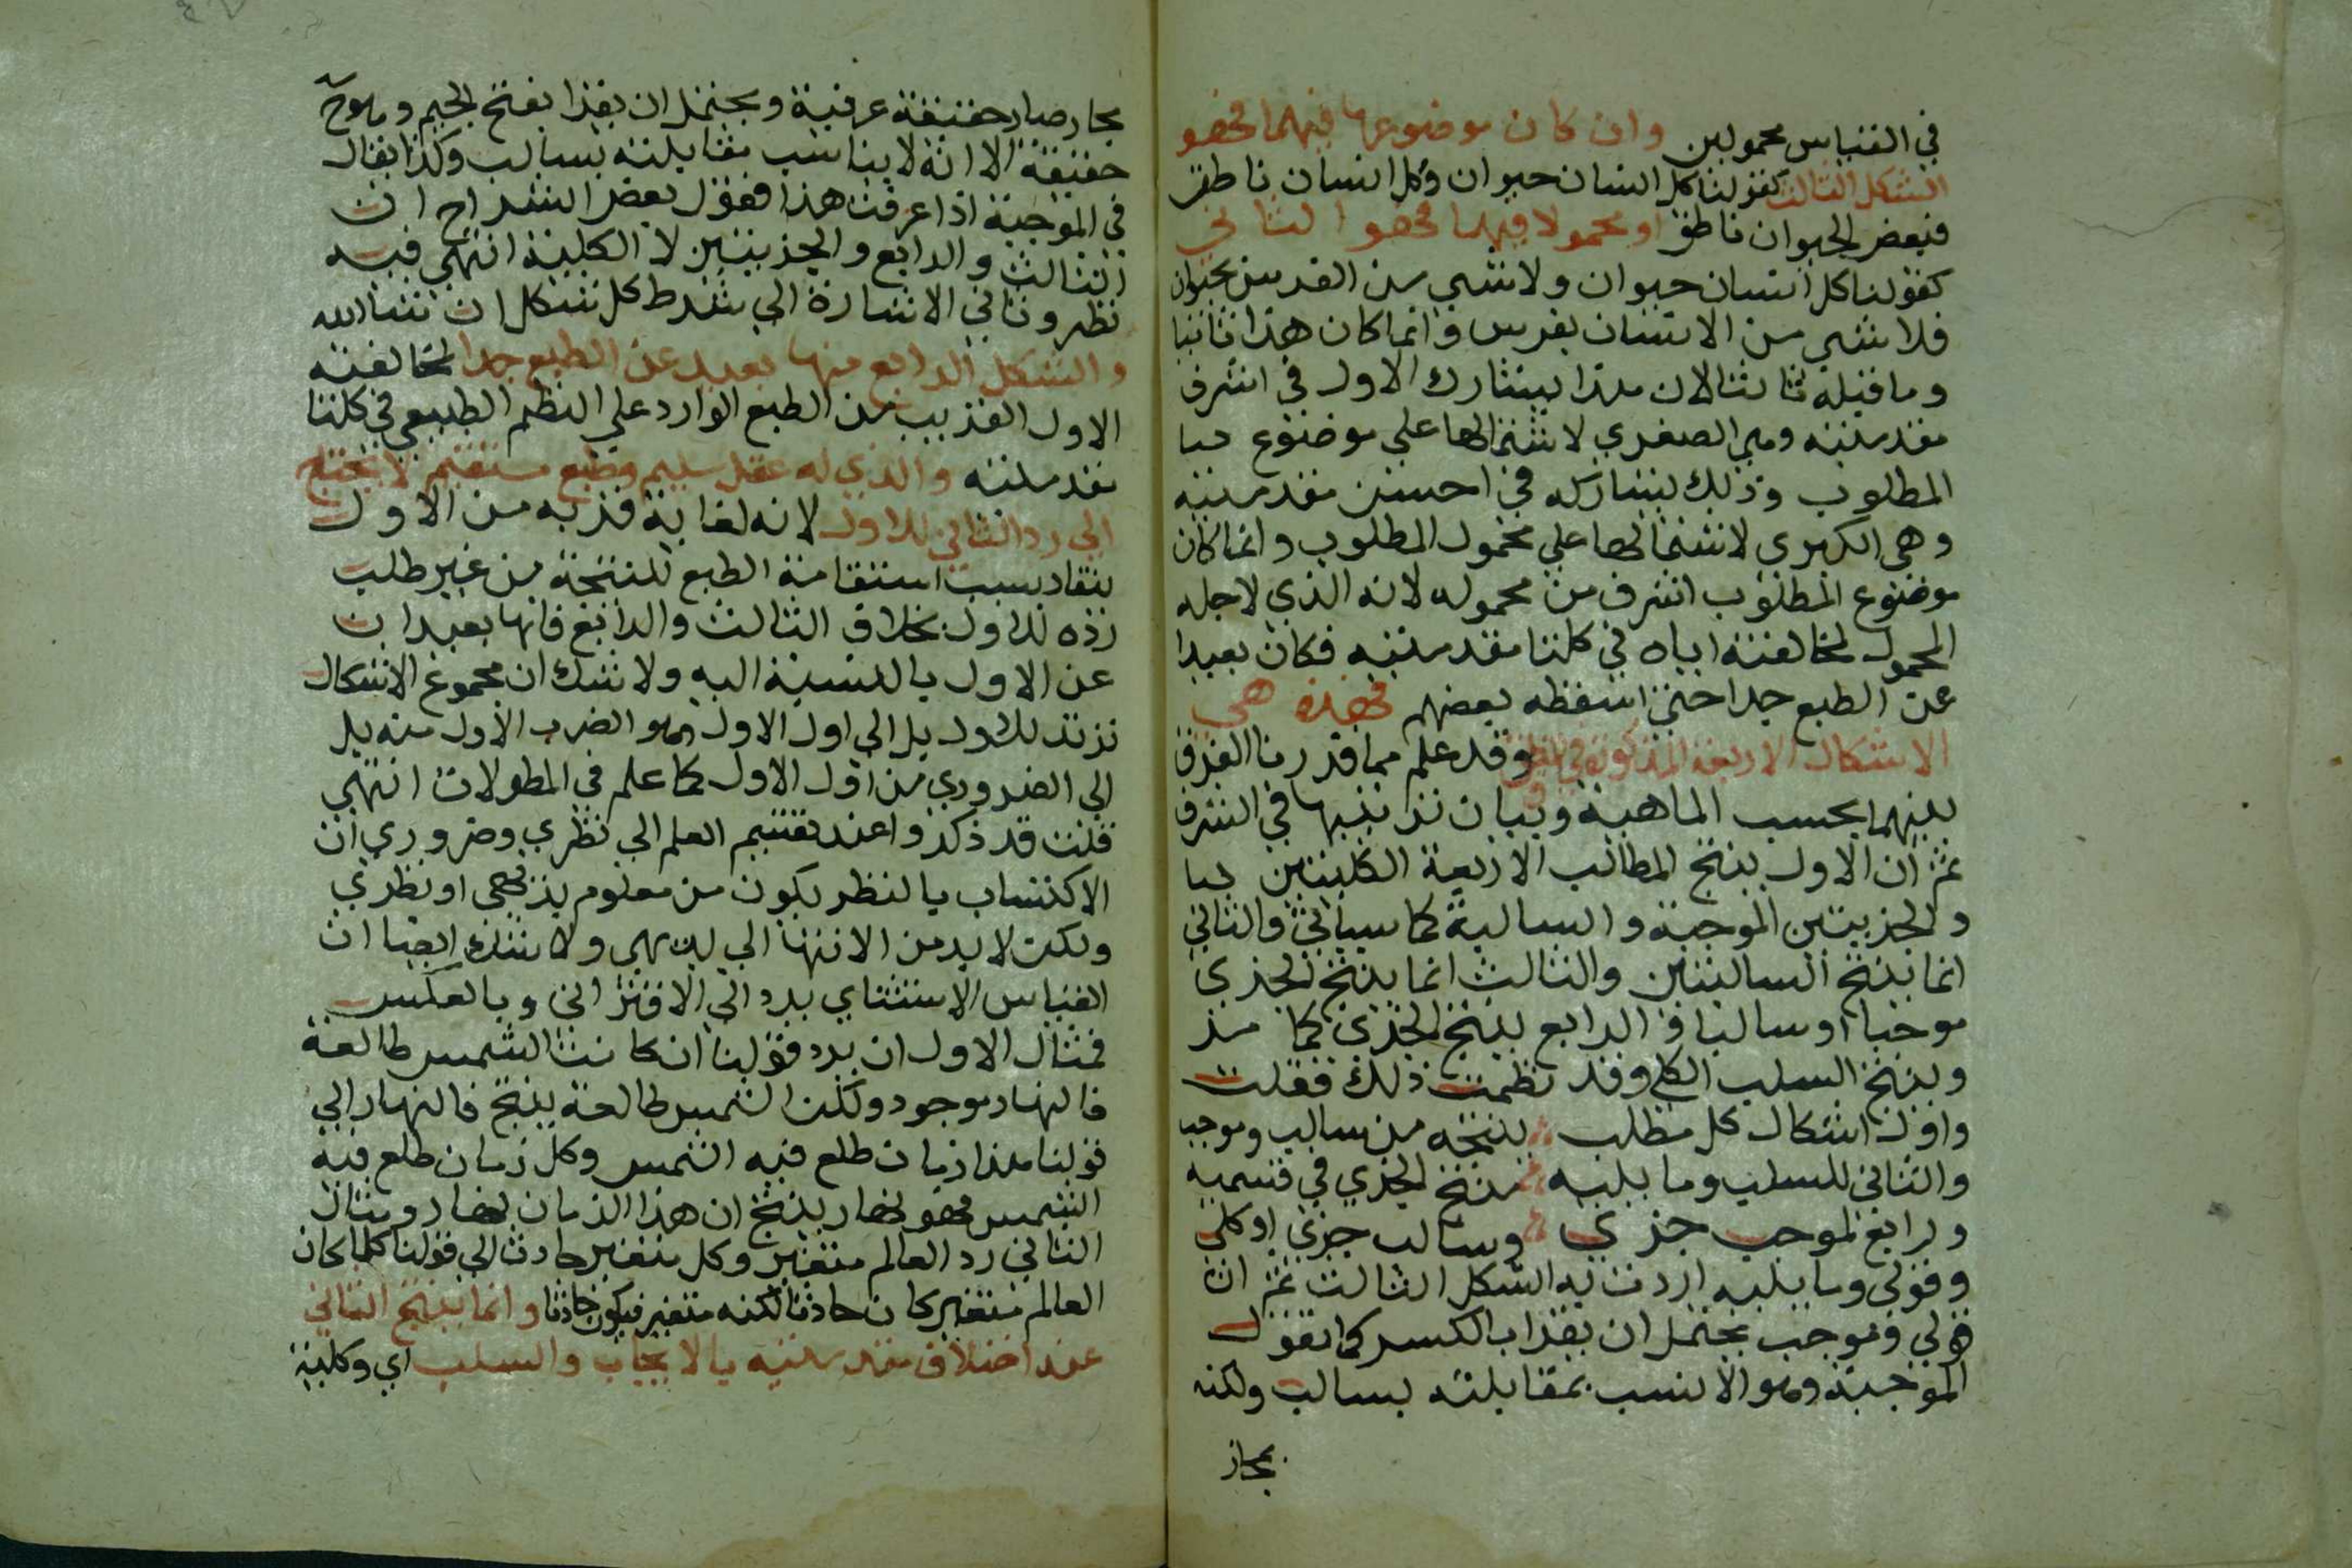 في القياس محمولين وان كان موضوعها فيهما فهو
الشكل الثالث كقولنا كل انسان حيوان وكل انسان ناطق
فبعض الحيوان ناطق او محمولا فيهما فهو الثاني
كقولنا كل انسان حيوان ولا شي من الفرس بحيوان
فلا شي من الانسان بفرس وانما كان هذا ثانيا
وما قبله ثالثا لان هذا يشارك الاول في اشرف
مقدمتيه وهي الصغري لاشتمالها على موضوع
المطلوب وذلك يشاركه في احسن مقدمتيه
وهي الكبري لاشتمالها علي محمول المطلوب وانما كان
موضوع المطلوب اشرف من محموله لانه الذي لاجله
المحمول لمخالفته اياه في كلتا مقدمتيه فكان بعيدا
عن الطبع جدا حتي اسقطه بعضهم فهذه هي
الاشكال الاربعة المذكورة في المنطق وقد علم مما قدرنا الفرق
بينهما بحسب الماهية وبيان ترتيبها في الشرف
ثم ان الاول ينتج المطالب الاربعة الكليتين
والجزييتين الموجبة والسالبة كما سياتي والثاني
انما ينتج السالبتين والثالث انما ينتج الجزي
موجبا او سالبا والرابع ينتج الجزي كما مر
وينتج السلب الكلي وقد نظمت ذلك فقلت
واول اشكال كل مطلب ينتجه من سالب وموجب
والثاني للسلب وما يليه منتج الجزي في قسميه
ورابع لموجب جزي وسالب جزي او كلي
وقولي وما يليه اردت به الشكل الثالث ثم ان
قولي وموجب يحتمل ان يقرا بالكسر كما تقول
الموجبة وهو الانسب بمقابلته بسالب ولكنه
مجاز
مجاز صار حقيقة عرفية ويحتمل ان يقرا بفتح الجيم وهو ح
حقيقة الا انه لا يناسب مقابلته بسالب وكذا يقال
في الموجبة اذا عرفت هذا فقول بعض الشراح ان
الثالث والرابع والجزييتين لا الكلية انتهي فيه
نظر وتاتي الاشارة الي شرط كل شكل ان شا الله
والشكل الرابع منها بعيد عن الطبع جدا لمخالفته
الاول القريب من الطبع الوارد علي النظم الطبيعي في كلتا
مقدمتيه والذي له عقل سليم وطبع مستقيم لا يحتاج
الي رد الثاني للاول لانه لغاية قربه من الاول
ينقاد بسبب استقامة الطبع للنتيجة من غير طلب
رده للاول بخلاف الثالث والرابع فانها بعيدان
عن الاول بالنسبة اليه ولا شك ان مجموع الاشكال
ترتد للاول بل الي اول الاول وهو الضرب الاول منه بل
الي الضروري من اول الاول كما علم في المطولات انتهي
قلت قد ذكروا عند تقسيم العلم الي نظري وضروري ان
الاكتساب بالنظر يكون من معلوم بديهي او نظري
ولكن لا بد من الانتها الي بديهي ولا شك ايضا ان
القياس الاستثناي يرد الي الاقتراني وبالعكس
فمثال الاول ان يرد قولنا ان كانت الشمس طالعة
فالنهار موجود ولكن الشمس طالعة ينتج فالنهار الي
قولنا هذا زمان طلع فيه الشمس وكل زمان طلع فيه
الشمس فهو نهار ينتج ان هذا الزمان نهار ومثال
الثاني رد العالم متغير وكل متغير حادث الي قولنا كلما كان
العالم متغير كان حادثا لكنه متغير فيكون حادثا وانما ينتج الثاني
عند اختلاف مقدمتيه بالايجاب والسلب اي وكلية